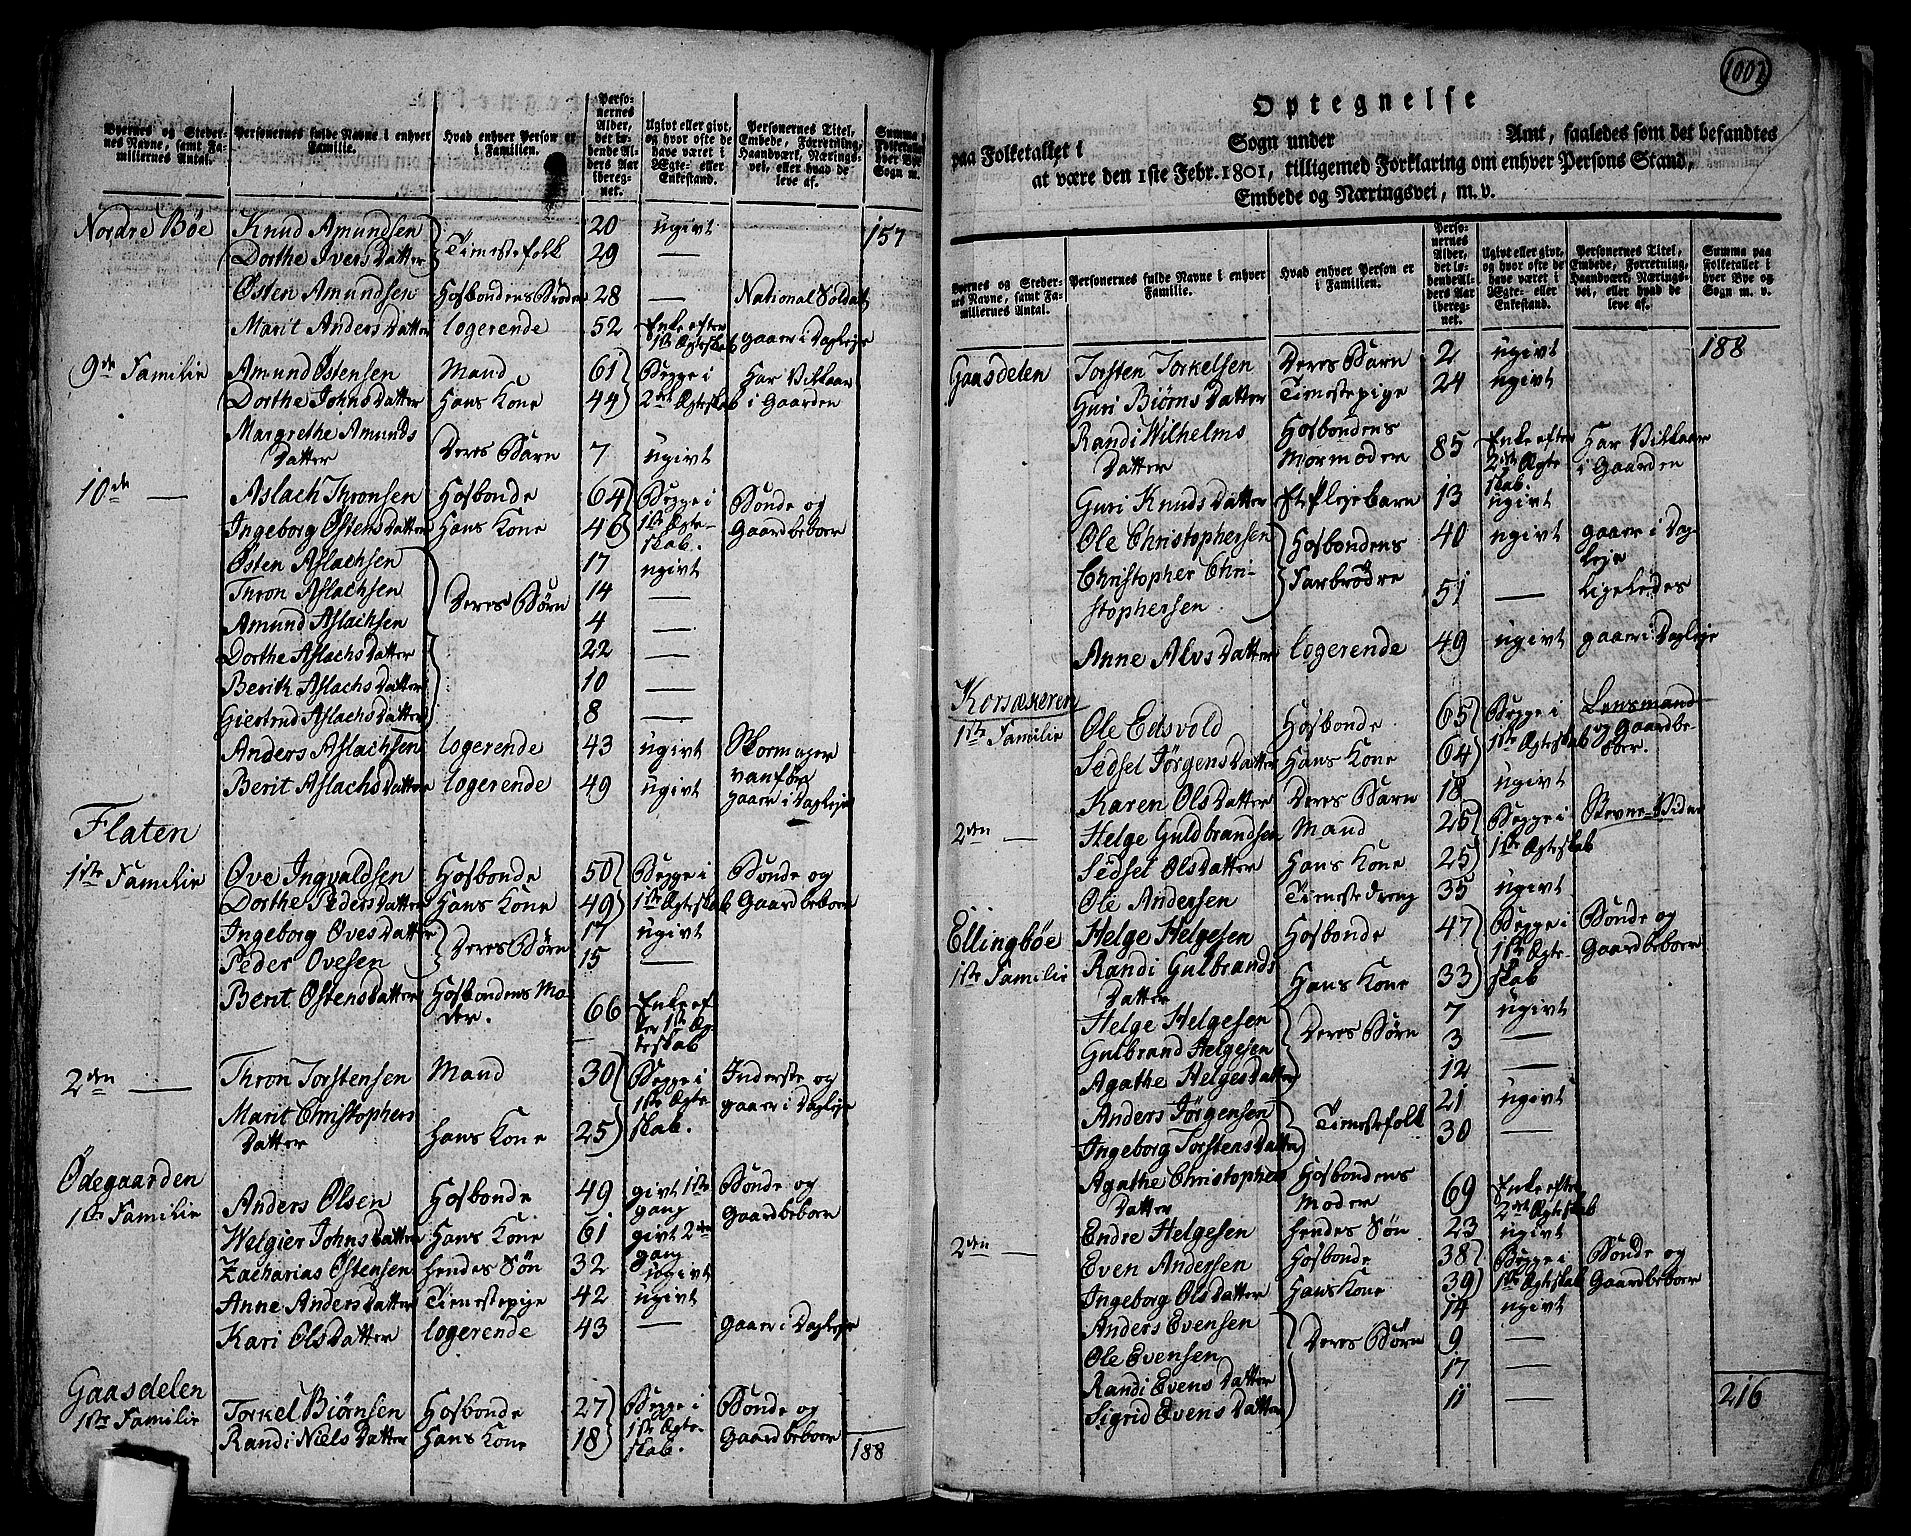 Byernes og Steder-
nes Navne, samt Fa-
miliernes Antal.
Personernes fulde Navne i enhver
Familie.
Hvad enhver Person er
i Familien.
Perso-
nernes
Alder,
det lø-
bende Al-
ders Aar
iberegnet.
Ugivt eller givt,
og hvor ofte de
have været i
Ægte- eller
Enkestand.
Personernes Titel,
Embede, Forretning,
Haandværk, Nærings-
vei, eller hvad de
leve af.
Summa
Folketallet
hver Bye
Sogn m.
Nordre Bøe Knud Amundsen Tienestefolk 20 ugivt 157
Dorthe Ivers Datter 29 —
Østen Amundsen Hosbondens Broder 28 — National Soldat
Marit Anders Datter logerende 52 Enke efter 1ste Ægteskab gaaer i Dagleje
9de Familie Amund Østensen Mand 61 Begge i Har Vilkaar
Dorthe Johns Datter Hans Kone 44 2det Ægteskab i Gaarden
Margrethe Amunds
Datter Deres Barn 7 ugivt
10de — Aslach Thronsen Hosbonde 64 Begge i Bonde og
Ingeborg Østens Datter Hans Kone 46 1ste Ægte- Gaardbeboer
skab.
Østen Aslachsen 17 ugivt
Thron Aslachsen Deres Børn 14 —
Amund Aslachsen 4 —
Dorthe Aslachs Datter 22 —
Berith Aslachs Datter 10 —
Giertrud Aslachs Datter 8 —
Anders Aslachsen logerende 43 ugivt Skomager
vanfør
Berit Aslachs Datter logerende 49 ugivt gaaer i Dagleje
Flaten
1ste Familie Ove Ingvaldsen Hosbonde 50 Begge i Bonde og
Dorthe Peders Datter Hans Kone 49 1ste Ægteskab Gaardbeboer
Ingeborg Oves Datter Deres Børn 17 ugivt
Peder Ovesen 15 —
Berit Østens Datter Hosbondens Mo-
der. 66 Enke ef-
ter 1ste Æg-
teskab
2den — Thron Torstensen Mand 30 Begge i Inderste og
Marit Christophers 1ste Ægte- gaaer i Dagleje
Datter Hans Kone 25 skab.
Ødegaarden
1ste Familie Anders Olsen Hosbonde 49 givt 1ste Bonde og
gang Gaardbeboer
Welgier Johns Datter Hans Kone 61 givt 2den
gang
Zacharias Østensen hendes Søn 32 ugivt
Anne Anders Datter Tienestepige 42 ugivt
Kari Ols Datter logerende 43 — gaaer i Dagleje
Gaasdelen
1ste Familie Torkel Biørnsen Hosbonde 27 Begge i Bonde og
Randi Niels Datter Hans Kone 18 1ste Ægte- Gaardbeboer
skab. 188
1002
Optegnelse
paa Folketallet i Sogn under Amt, saaledes som det befandtes
at være den 1ste Febr. 1801, tilligemed Forklaring om enhver Persons Stand,
Embede og Næringsvei, m. v.
Byernes og Steder-
nes Navne, samt Fa-
miliernes Antal.
Personernes fulde Navne i enhver
Familie.
Hvad enhver Person er
i Familien.
Perso-
nernes
Alder,
det lø-
bende Al-
ders Aar
ibereg-
net.
Ugivt eller givt,
og hvor ofte de
have været i
Ægte- eller
Enkestand.
Personernes Titel,
Embede, Forretning,
Haandværk, Nærings-
vei, eller hvad de
leve af.
Summa paa
Folketallet i
hver Bye og
Sogn m. v.
Gaasdelen Torsten Torkelsen Deres Barn 2 ugivt 188
Guri Biørns Datter Tienestepige 24 ugivt
Randi Wilhelms Hosbondens Enke efter Har Vilkaar
Datter Mormoder 85 2det Ægte- i Gaarden
skab.
Guri Knuds Datter Et Plejebarn 13 ugivt
Ole Christophersen Hosbondens 40 ugivt gaaer i Dag-
leje
Christopher Chri- Farbrødre
stophersen 51 — ligeledes
Anne Alvs Datter logerende 49 ugivt gaaer i Dagleje
Korsækeren
1ste Familie Ole Edsvold Hosbonde 65 Begge i Lensmand
og Gaardbe-
Sedsel Jørgens Datter Hans Kone 64 1ste Ægteskab boer.
Karen Ols Datter Deres Barn 18 ugivt
2den — Helge Guldbrandsen Mand 25 Begge i Stevne-Vidne
Sedsel Olsdatter Hans Kone 25 1ste Ægteskab
Ole Andersen Tienestedreng 35 ugivt
Ellingbøe Helge Helgesen Hosbonde 47 Begge i Bonde og
1ste Familie Randi Gulbrands 1ste Ægte- Gaardbeboer
Datter Hans Kone 33 skab
Helge Helgesen Deres Børn 7 ugivt
Gulbrand Helgesen 3 —
Agathe Helges Datter 12 —
Anders Jørgensen Tienestefolk 21 ugivt
Ingeborg Torstens Datter 30 —
Agathe Christophers Hosbondens
Datter Moder 69 Enke efter
2det Ægteskab
Endre Helgesen hendes Søn 23 ugivt
2den — Even Andersen Hosbonde 38 Begge i Bonde og
Ingeborg Ols Datter Hans Kone 39 1ste Ægteskab Gaardbeboer
Anders Evensen Deres Børn 14 ugivt
Ole Evensen 9 —
Randi Evens Datter 17 —
Sigrid Evens Datter 11 — 216